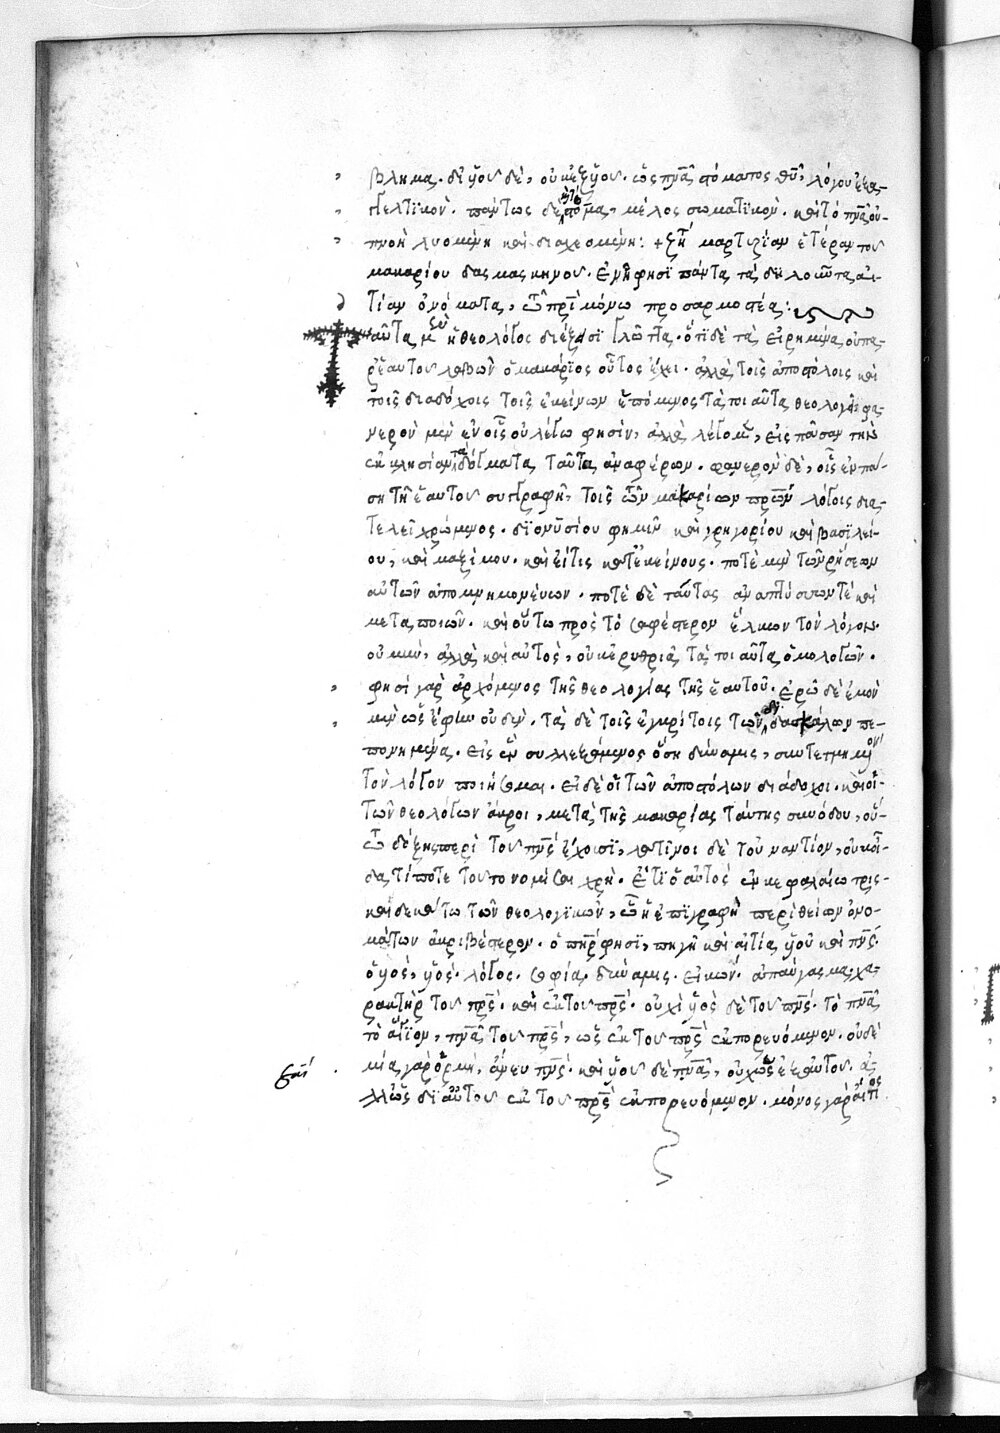 βλημα. δι' υἱοῦ δὲ, οὐκ ἐξ υἱοῦ. ὡς πνᾶ στόματος θῦ, λόγου ἐξαγ-
γελτικὸν. πάντως δὲ στόμα, μέλος σωματικὸν. καὶ τὸ πνᾶ οὖν
πνοὴ λυομένη καὶ διαχεομένη: + ξη΄ μαρτυρίαν ἑτέραν τοῦ
μακαρίου δαμασκηνοῦ. ἐν ἧ φησὶ πάντα τὰ δηλοῦντα αἰ-
τίαν ὀνόματα, τῶ πρὶ μόνω προσαρμοστέα:
Ταῦτα μὲν ἡ θεολόγος διέξεισι γλῶττα. ὅτι δὲ τὰ εἰρημένα οὐ παρ'
ἑαυτοῦ λαβὼν ὁ μακάριος οὗτος ἔχει. ἀλλὰ τοῖς ἀποστόλοις καὶ
τοῖς διαδόχοις τοῖς ἐκείνων ἑπόμενος τὰ τοιαῦτα θεολογεῖ, φα-
νερὸν μὲν ἐν οἷς οὐ λέγω φησὶν, ἀλλὰ λέγομεν, εἰς πᾶσαν τὴν
ἐκκλησίαν τὰ δόγματα ταῦτα ἀναφέρων. φανερὸν δὲ, οἷς ἐν πά-
ση τῆ ἑαυτοῦ συγγραφῆ, τοῖς τῶν μακαρίων πρων λόγοις δια-
τελεῖ χρώμενος. διονυσίου φημὶ καὶ γρηγορίου καὶ βασιλεί-
ου, καὶ μαξίμου. καὶ εἴ τις κατ' ἐκείνους. ποτὲ μὲν τῶν ῥήσεων
αὐτῶν ἀπομνημονεύων. ποτὲ δὲ ταύτας ἀναπτύσσων τὲ καὶ
μεταποιῶν. καὶ οὕτω πρὸς τὸ σαφέστερον ἕλκων τὸν λόγον.
οὐ μὴν, ἀλλὰ καὶ αὐτὸς, οὐκ ἐρυθριᾶ τὰ τοιαῦτα ὁμολογῶν.
φησὶ γὰρ ἀρχόμενος τῆς θεολογίας τῆς ἑαυτοῦ. ἐρῶ δὲ ἐμὸν
μὲν ὡς ἔφην οὐδὲν. τὰ δὲ τοῖς ἐγκρίτοις τῶν διδασκάλων πε-
πονημένα. εἰς ἓν συλλεξάμενος ὅση δύναμις, συντετμημένον
τὸν λόγον ποιήσομαι. εἰ δὲ οἱ τῶν ἀποστόλων διάδοχοι. καὶ οἱ
τῶν θεολόγων ἄκροι, μετὰ τῆς μακαρίας ταύτης συνόδου, οὕ-
τω δόξης περὶ τοῦ πνς ἔχουσι, λατῖνοι δὲ τοὐναντίον, οὐκ οἶ-
δα τί ποτε τοῦτο νομίσαι χρὴ. ἔτι ὁ αὐτὸς ἐν κεφαλαίω τρισ-
καιδεκάτω τῶν θεολογικῶν, ὧ ἡ ἐπιγραφὴ περὶ θείων ὀνο-
μάτων ἀκριβέστερον. ὁ πηρ φησὶ, πηγὴ καὶ αἰτία υἱοῦ καὶ πνς.
ὁ υἱὸς, υἱὸς. λόγος. σοφία. δύναμις. εἰκών. ἀπαύγασμα. χα-
ρακτὴρ τοῦ πρς. καὶ ἐκ τοῦ πρς. οὐχὶ υἱὸς δὲ τοῦ πνς. τὸ πνᾶ
τὸ ἅγιον, πνᾶ τοῦ πρς, ὡς ἐκ τοῦ πρς ἐκπορευόμενον. οὐδε-
μία γὰρ ὁρμὴ, ἄνευ πνς. καὶ υἱοῦ δὲ πνᾶ, οὐχ ὡς ἐξ αὐτοῦ. ἀλ-
λ' ὡς δι' αὐτοῦ ἐκ τοῦ πρς ἐκπορευόμενον. μόνος γὰρ αἴτιος